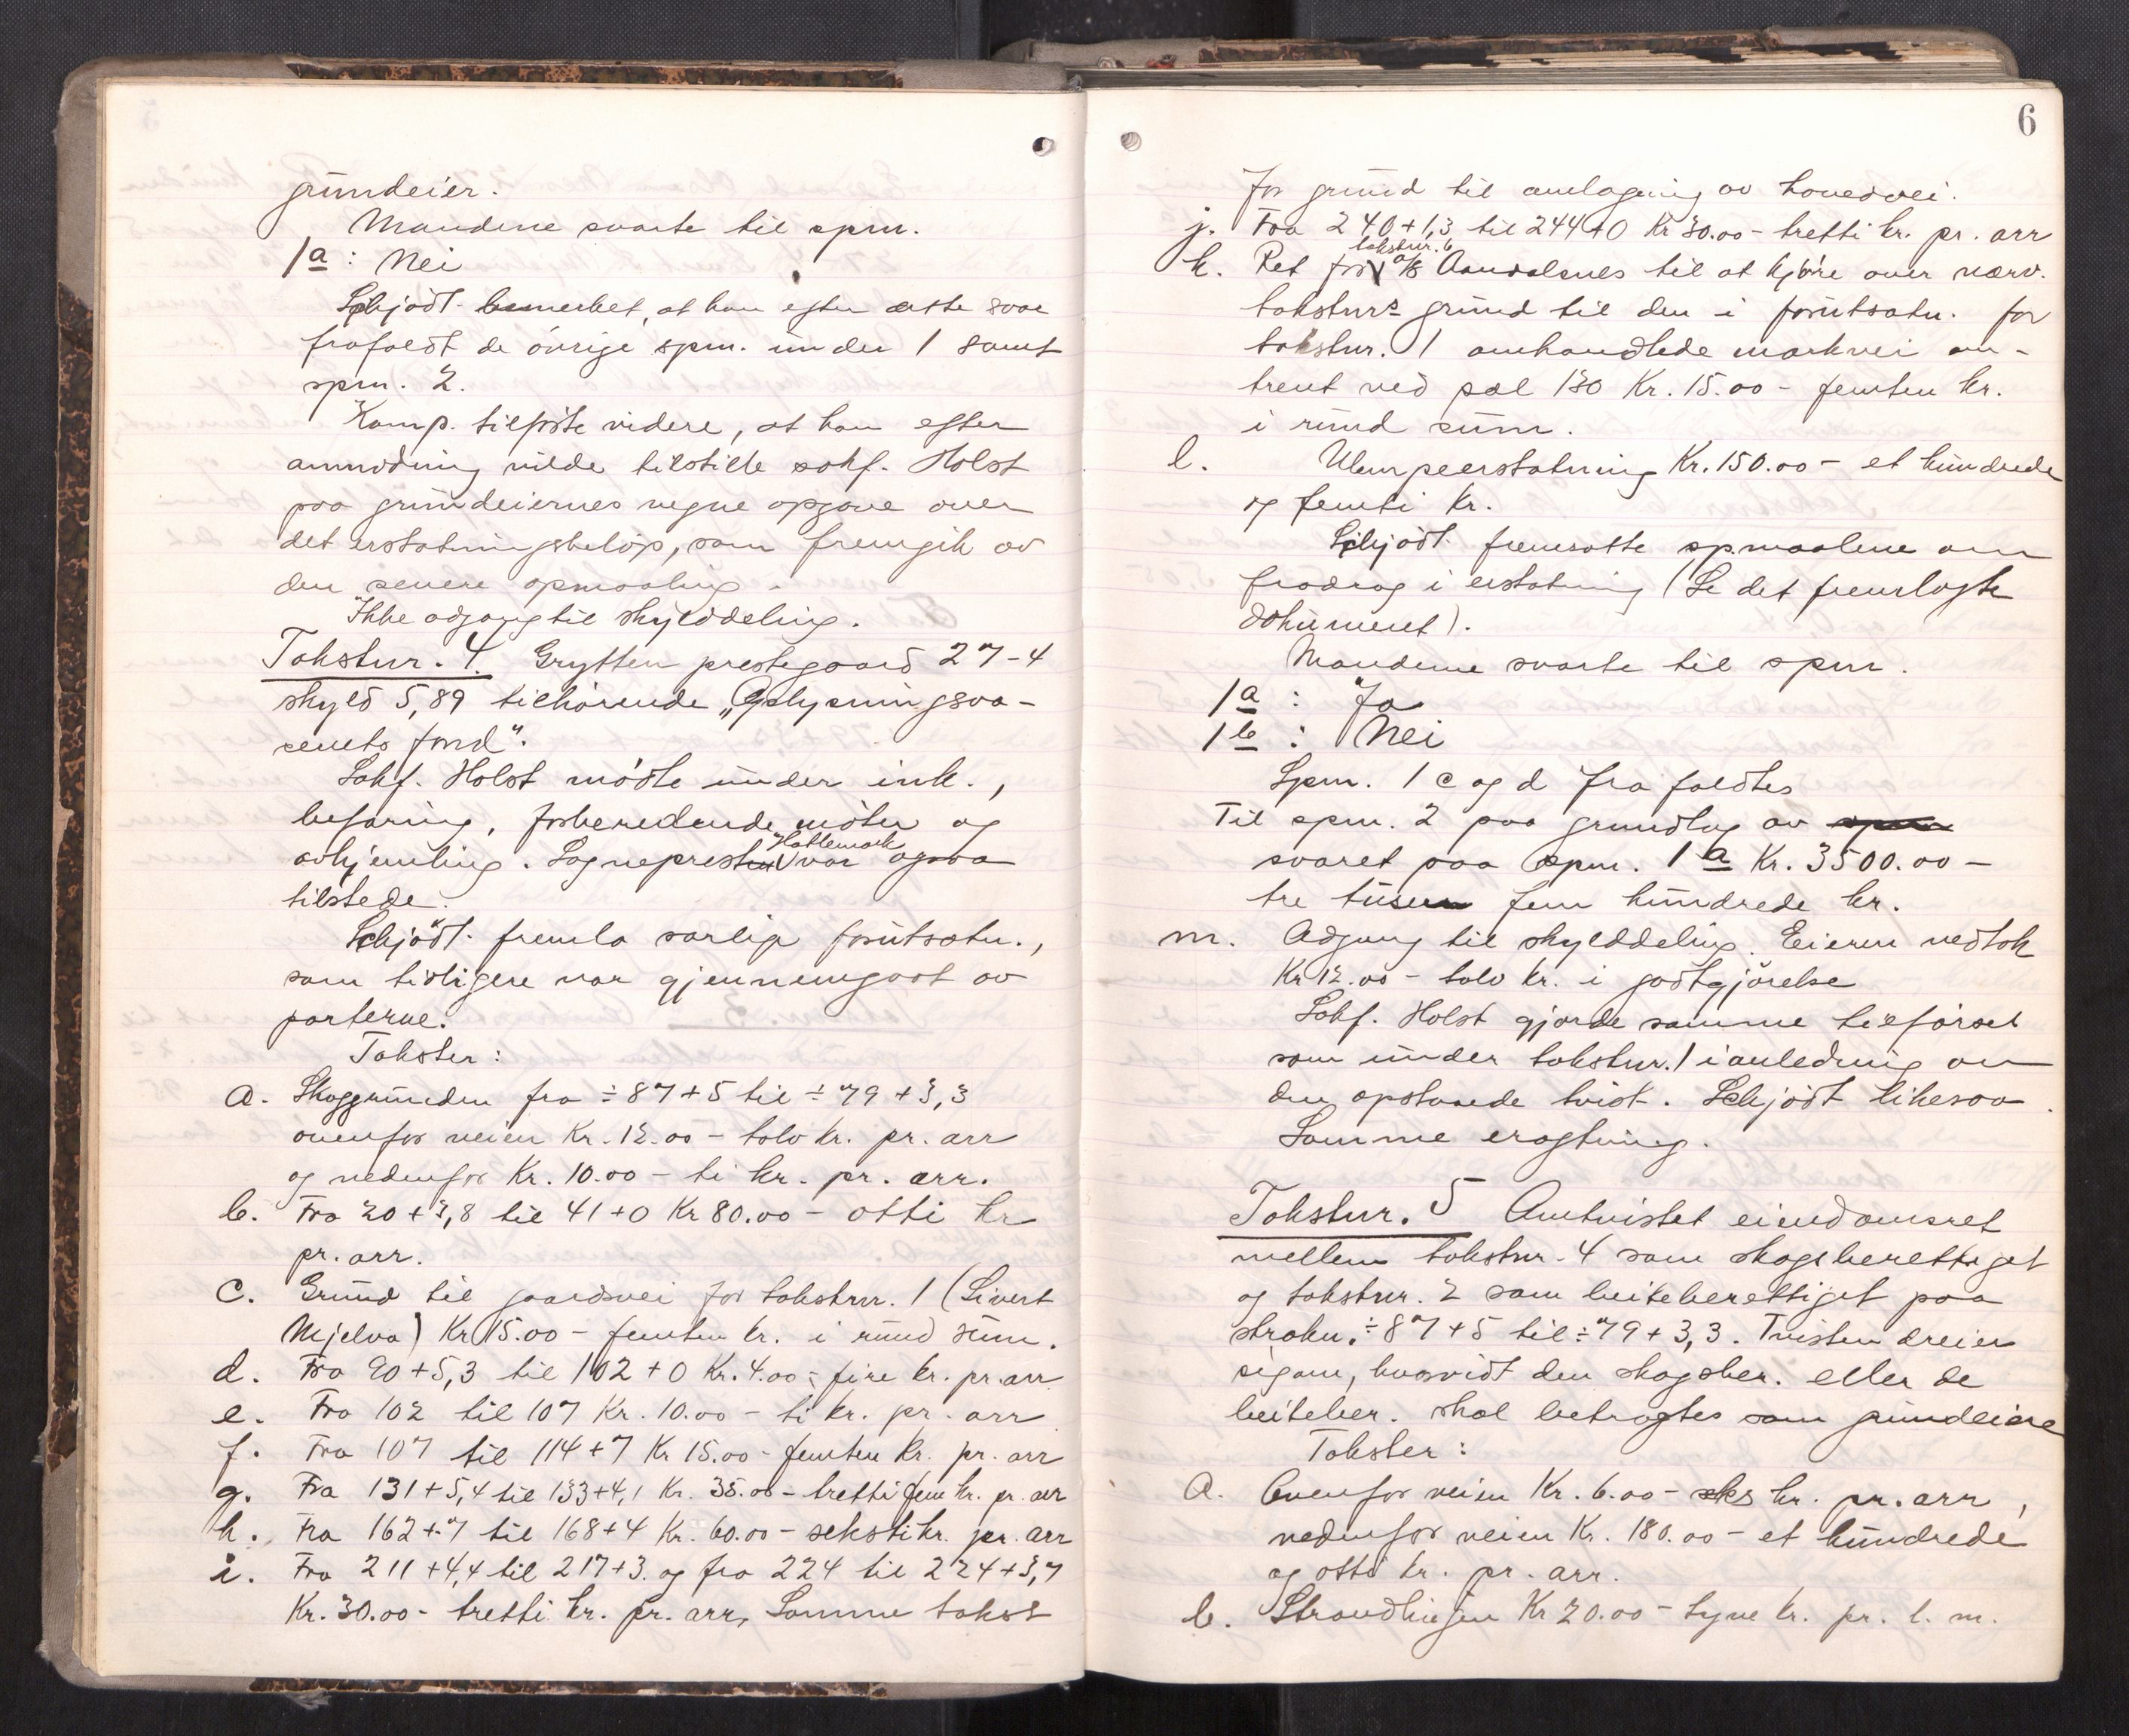 grundeier.
Mændene svarte til spm.
1a : Nei
Schjødt bemerket, at han efter dette svar
frafaldt de øvrige spm. under 1 samt
spm. 2.
Komp. tilførte videre, at han efter
anmodning vilde tilstille sakf. Holst
paa grundeiernes vegne opgave over
det erstatningsbeløp, som fremgik av
den senere opmaaling.
Ikke adgang til skylddeling.
Takstnr. 4. Grytten prestegaard 27-4
skyld 5,89 tilhørende „Oplysningsvæ-
senets fond".
Sakf. Holst møtte under ink.,
befaring, forberedende møter og
avhjemling. Sogneprest Hattemark var ogsaa
tilstede.
Schjødt fremla særlige forutsætn.,
som tidligere var gjennemgaat av
parterne.
Takster:
a. Skoggrunden fra ÷87+5 til ÷79+3,3
ovenfor veien Kr. 12.00 - tolv kr. pr. arr
og nedenfor Kr. 10.00 - ti kr. pr. arr.
b. Fra 20+3,8 til 41+0 Kr 80.00 - otti kr
pr. arr.
c. Grund til gaardsvei for takstnr. 1 (Sivert
Mjelva) Kr 15.00 - femten kr. i rund sum.
d. Fra 90+5,3 til 102+0 Kr. 4.00 - fire kr. pr. arr
e. Fra 102 til 107 Kr. 10.00 - ti kr. pr. arr
f. Fra 107 til 114+7 Kr 15.00 - femten kr. pr. arr
g. Fra 131+5,4 til 133+4,1 Kr. 35.00 - tretti fem kr. pr. arr
h. Fra 162+7 til 168+4 Kr. 60.00 - seksti kr. pr. arr
i. Fra 211+4,4 til 217+3. og fra 224 til 224+3,7
Kr. 30.00 - tretti kr. pr. arr, Samme takst
6
for grund til omlægning av hovedvei.
j. Fra 240+1,3 til 244+0 Kr 30.00 - tretti kr. pr. arr
takstnr. 6
k. Ret for a/s Aandalsnes til at kjøre over nærv.
takstnrs grund til den i forutsætn. for
takstnr. 1 omhandlede markvei om-
trent ved pæl 130 Kr. 15.00 - femten kr.
i rund sum.
l. Ulempeerstatning Kr. 150.00 - et hundrede
og femti kr.
Schjødt fremsatte spmaalene om
fradrag i erstatning (Se det fremlagte
dokument).
Mændene svarte til spm.
1a : Ja
1b : Nei
Spm. 1 c og d frafaldtes
Til spm. 2 paa grundlag av spm
svaret paa spm. 1a Kr. 3500.00 -
tre tusen fem hundrede kr.
m. Adgang til skylddeling. Eieren vedtok
Kr 12.00 - tolv kr. i godtgjørelse
Sakf. Holst gjorde samme tilførsel
som under takstnr. 1 i anledning av
den opstaaede tvist. Schjødt likesaa.
Samme eragtning.
Takstnr. 5 Omtvistet eiendomsret
mellem takstnr. 4 som skogsberettiget
og takstnr. 2 som beiteberettiget paa
strækn. ÷87+5 til ÷79+3,3. Tvisten dreier
sig om, hvorvidt den skogsber. eller de
beiteber. skal betragtes som grundeiere
Takster:
a. Ovenfor veien Kr. 6.00 - seks kr. pr. arr,
nedenfor veien Kr. 180.00 - et hundrede
og otti kr. pr. arr.
b. Strandlinjen Kr 20.00 - tyve kr. pr. l. m.